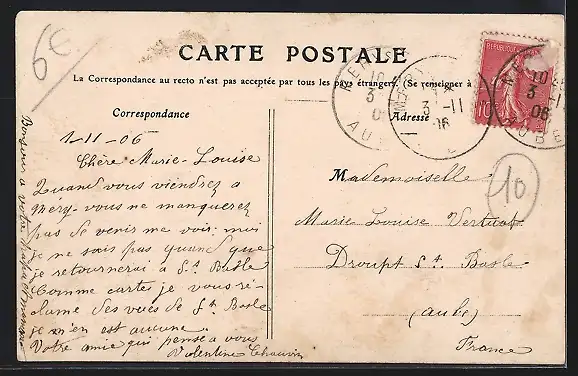 6€
CARTE POSTALE
La Correspondance au recto n'est pas acceptée par tous les pays étrangers. (Se renseigner à
Correspondance
1-11-06
Chère Marie-Louise
Quand vous viendrez a
Méry vous ne manquerez
pas de venir me voir; moi
je ne sais pas quand que
je retournerai à St. Basle
Comme cartes je vous ré-
clame des vues de St. Basle
je m'en est aucune.
Votre amie qui pense a vous
Valentine Chauvin
Bonjour a votre
Adresse
Mademoiselle
Marie Louise Vertuat
Droupt St. Basle
(Aube)
France
10
REPUBLIQUE
10
MERY
3 -11
06
AUBE
10
3
06
AUBE